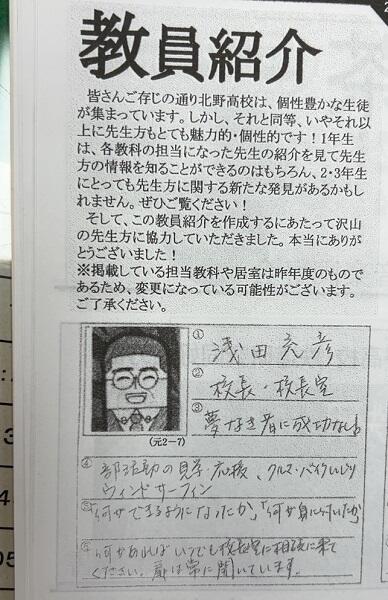 教員紹介
皆さんご存じの通り北野高校は、個性豊かな生徒
が集まっています。しかし、それと同等、いやそれ以
上に先生方もとても魅力的・個性的です！1年生
は、各教科の担当になった先生の紹介を見て先生
方の情報を知ることができるのはもちろん、2・3年生
にとっても先生方に関する新たな発見があるかもし
れません。ぜひご覧ください！
そして、この教員紹介を作成するにあたって沢山
の先生方に協力していただきました。本当にありが
とうございました！
※掲載している担当教科や居室は昨年度のもので
あるため、変更になっている可能性がございます。
ご了承ください。
① 浅田充彦
② 校長・校長室
③ 夢なき者に成功なし
(元2-7)
④ 部活動の見学・応援、クルマ・バイクいじり
ウィンドサーフィン
⑤「何ができるようになったか」「何が身に付いたか」
何かあればいつでも校長室に相談に来て
ください。扉は常に開いています。